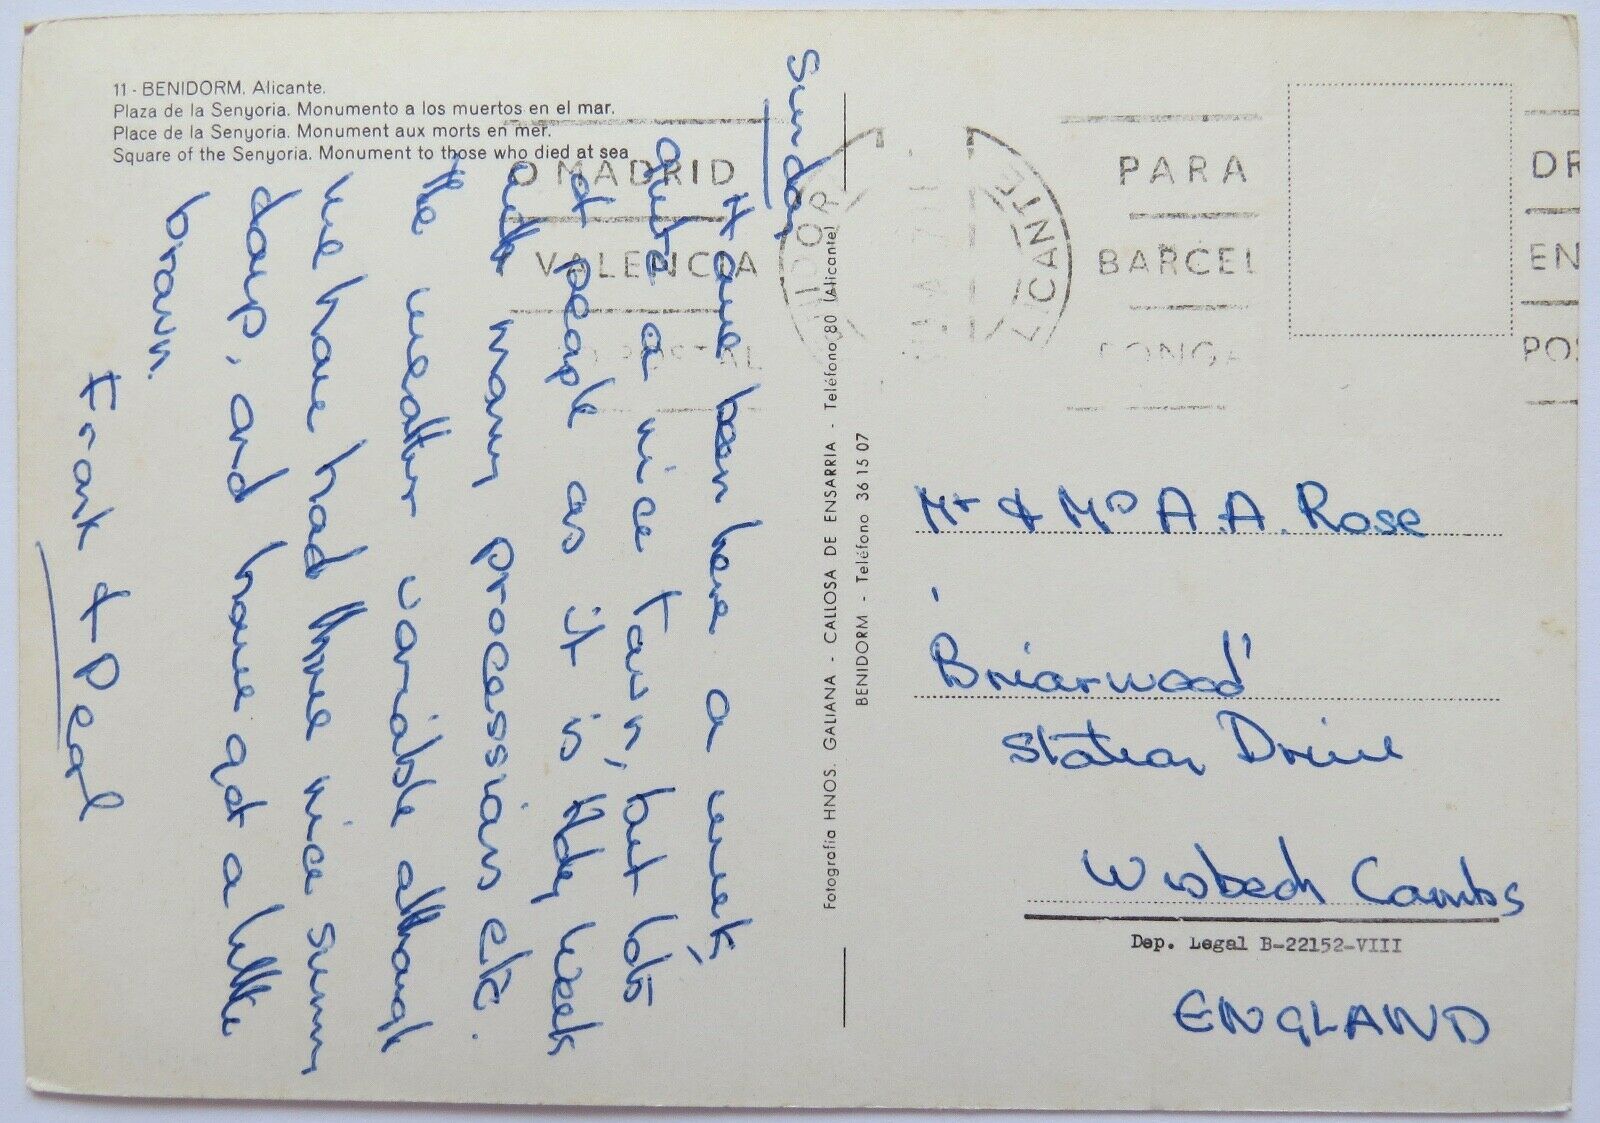 11 - BENIDORM. Alicante.
Plaza de la Senyoria. Monumento a los muertos en el mar.
Place de la Senyoria. Monument aux morts en mer.
Square of the Senyoria. Monument to those who died at sea
Sunday
Have been here a week,
quite a nice town, but lots
of people as it is Holy Week
with many processions etc.
the weather variable although
we have had three nice sunny
days, and have got a little
brown.
Frank & Peg
Fotografía HNOS. GALIANA - CALLOSA DE ENSARRIA - Teléfono 80 (Alicante)
BENIDORM - Teléfono 36 15 07
O MADRID
VALENCIA
POSTAL
NIDOR
LICANTE
PARA
BARCEL
ONGA
DR
EN
POS
Mr & Mrs A. A. Rose
'Briarwood'
Station Drive
Wisbech Cambs
Dep. Legal B-22152-VIII
ENGLAND